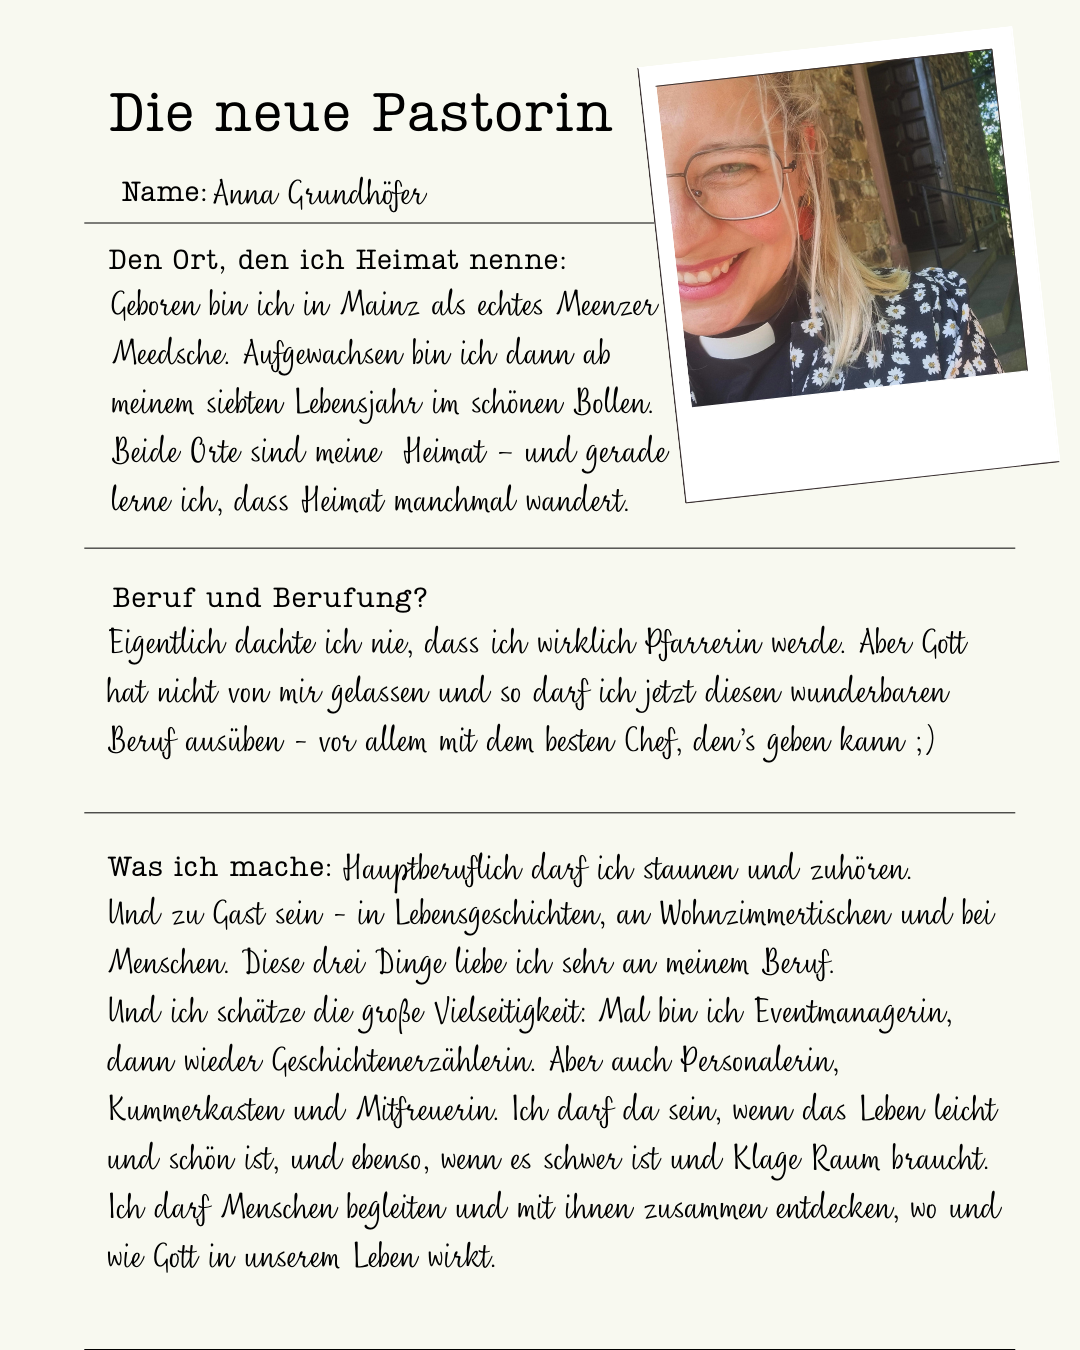 Die neue Pastorin
Name: Anna Grundhöfer
Den Ort, den ich Heimat nenne:
Geboren bin ich in Mainz als echtes Meenzer
Meedsche. Aufgewachsen bin ich dann ab
meinem siebten Lebensjahr im schönen Bollen.
Beide Orte sind meine Heimat – und gerade
lerne ich, dass Heimat manchmal wandert.
Beruf und Berufung?
Eigentlich dachte ich nie, dass ich wirklich Pfarrerin werde. Aber Gott
hat nicht von mir gelassen und so darf ich jetzt diesen wunderbaren
Beruf ausüben - vor allem mit dem besten Chef, den's geben kann ;)
Was ich mache: Hauptberuflich darf ich staunen und zuhören.
Und zu Gast sein - in Lebensgeschichten, an Wohnzimmertischen und bei
Menschen. Diese drei Dinge liebe ich sehr an meinem Beruf.
Und ich schätze die große Vielseitigkeit: Mal bin ich Eventmanagerin,
dann wieder Geschichtenerzählerin. Aber auch Personalerin,
Kummerkasten und Mitfreuerin. Ich darf da sein, wenn das Leben leicht
und schön ist, und ebenso, wenn es schwer ist und Klage Raum braucht.
Ich darf Menschen begleiten und mit ihnen zusammen entdecken, wo und
wie Gott in unserem Leben wirkt.